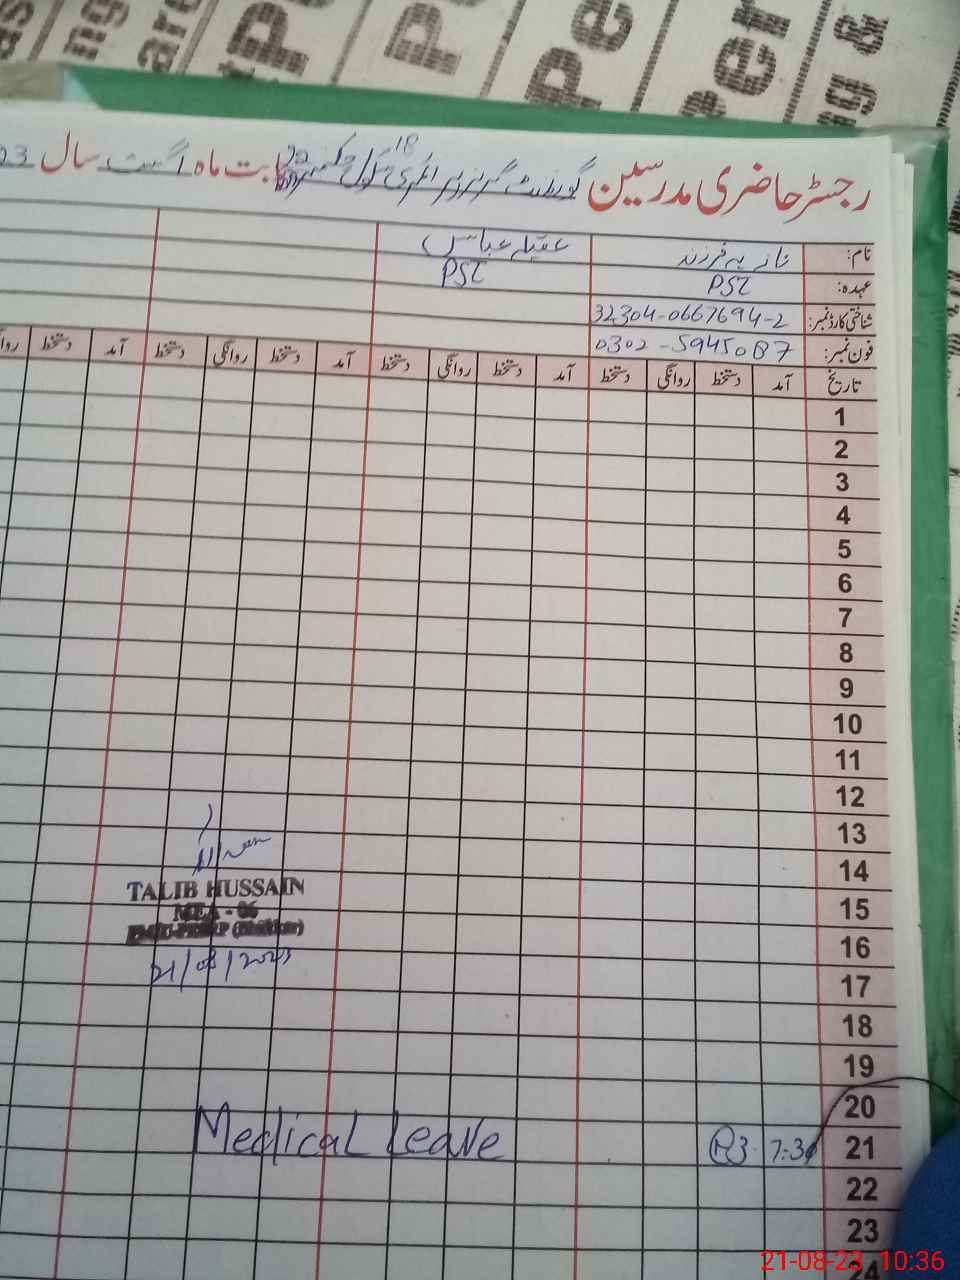 رجسٹر حاضری مدرسین گورنمنٹ گرلز پرائمری سکول چک نمبر 18 بابت ماہ اگست سال 23
نام: نازیہ فرزند عقیلہ عباس
عہدہ: PST PST
شناختی کارڈ نمبر: 32304-0667694-2
فون نمبر: 0302-5945087
تاریخ آمد دستخط روانگی دستخط آمد دستخط روانگی دستخط آمد دستخط روانگی دستخط آمد دستخط
1
2
3
4
5
6
7
8
9
10
11
12
13
14
TALIB HUSSAIN
15
MEA - 06
16
21/08/2023
17
18
19
20
21 7:30 Medical Leave
22
23
24
21-08-23 10:36